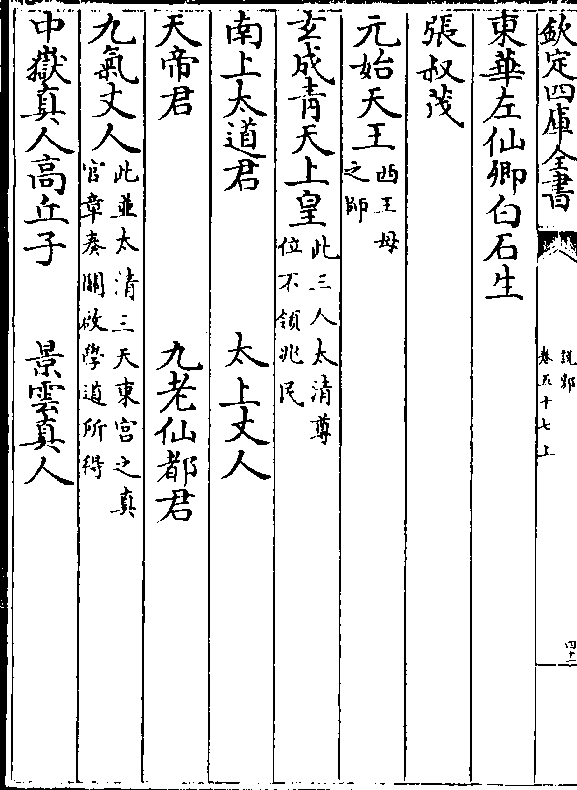 欽定四庫全書
說郛
卷五十七上
東華左仙卿白石生
張叔茂
元始天王西王母
之師
玄成青天上皇此三人太清尊
位不領兆民
南上太道君 太上丈人
天帝君 九老仙都君
九氣丈人此並太清三天東宮之真
官章奏關啟學道所得
中嶽真人高丘子 景雲真人